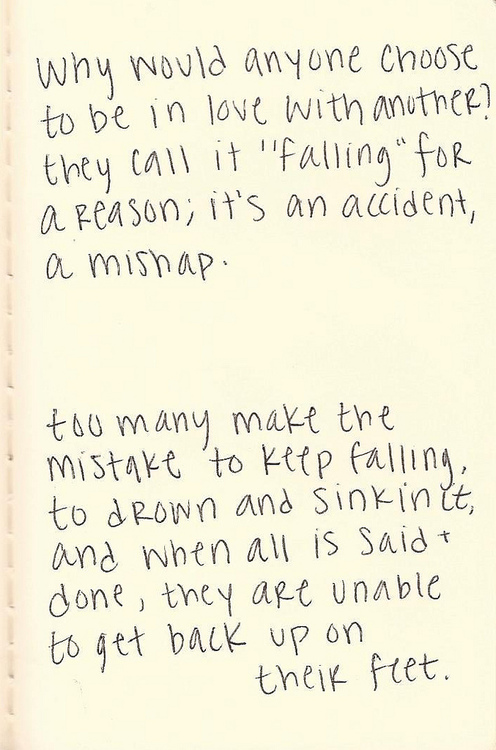 Why would anyone choose
to be in love with another?
they call it "falling" for
a reason; it's an accident,
a mishap.
too many make the
mistake to keep falling,
to drown and sink in it,
and when all is said +
done, they are unable
to get back up on
their feet.